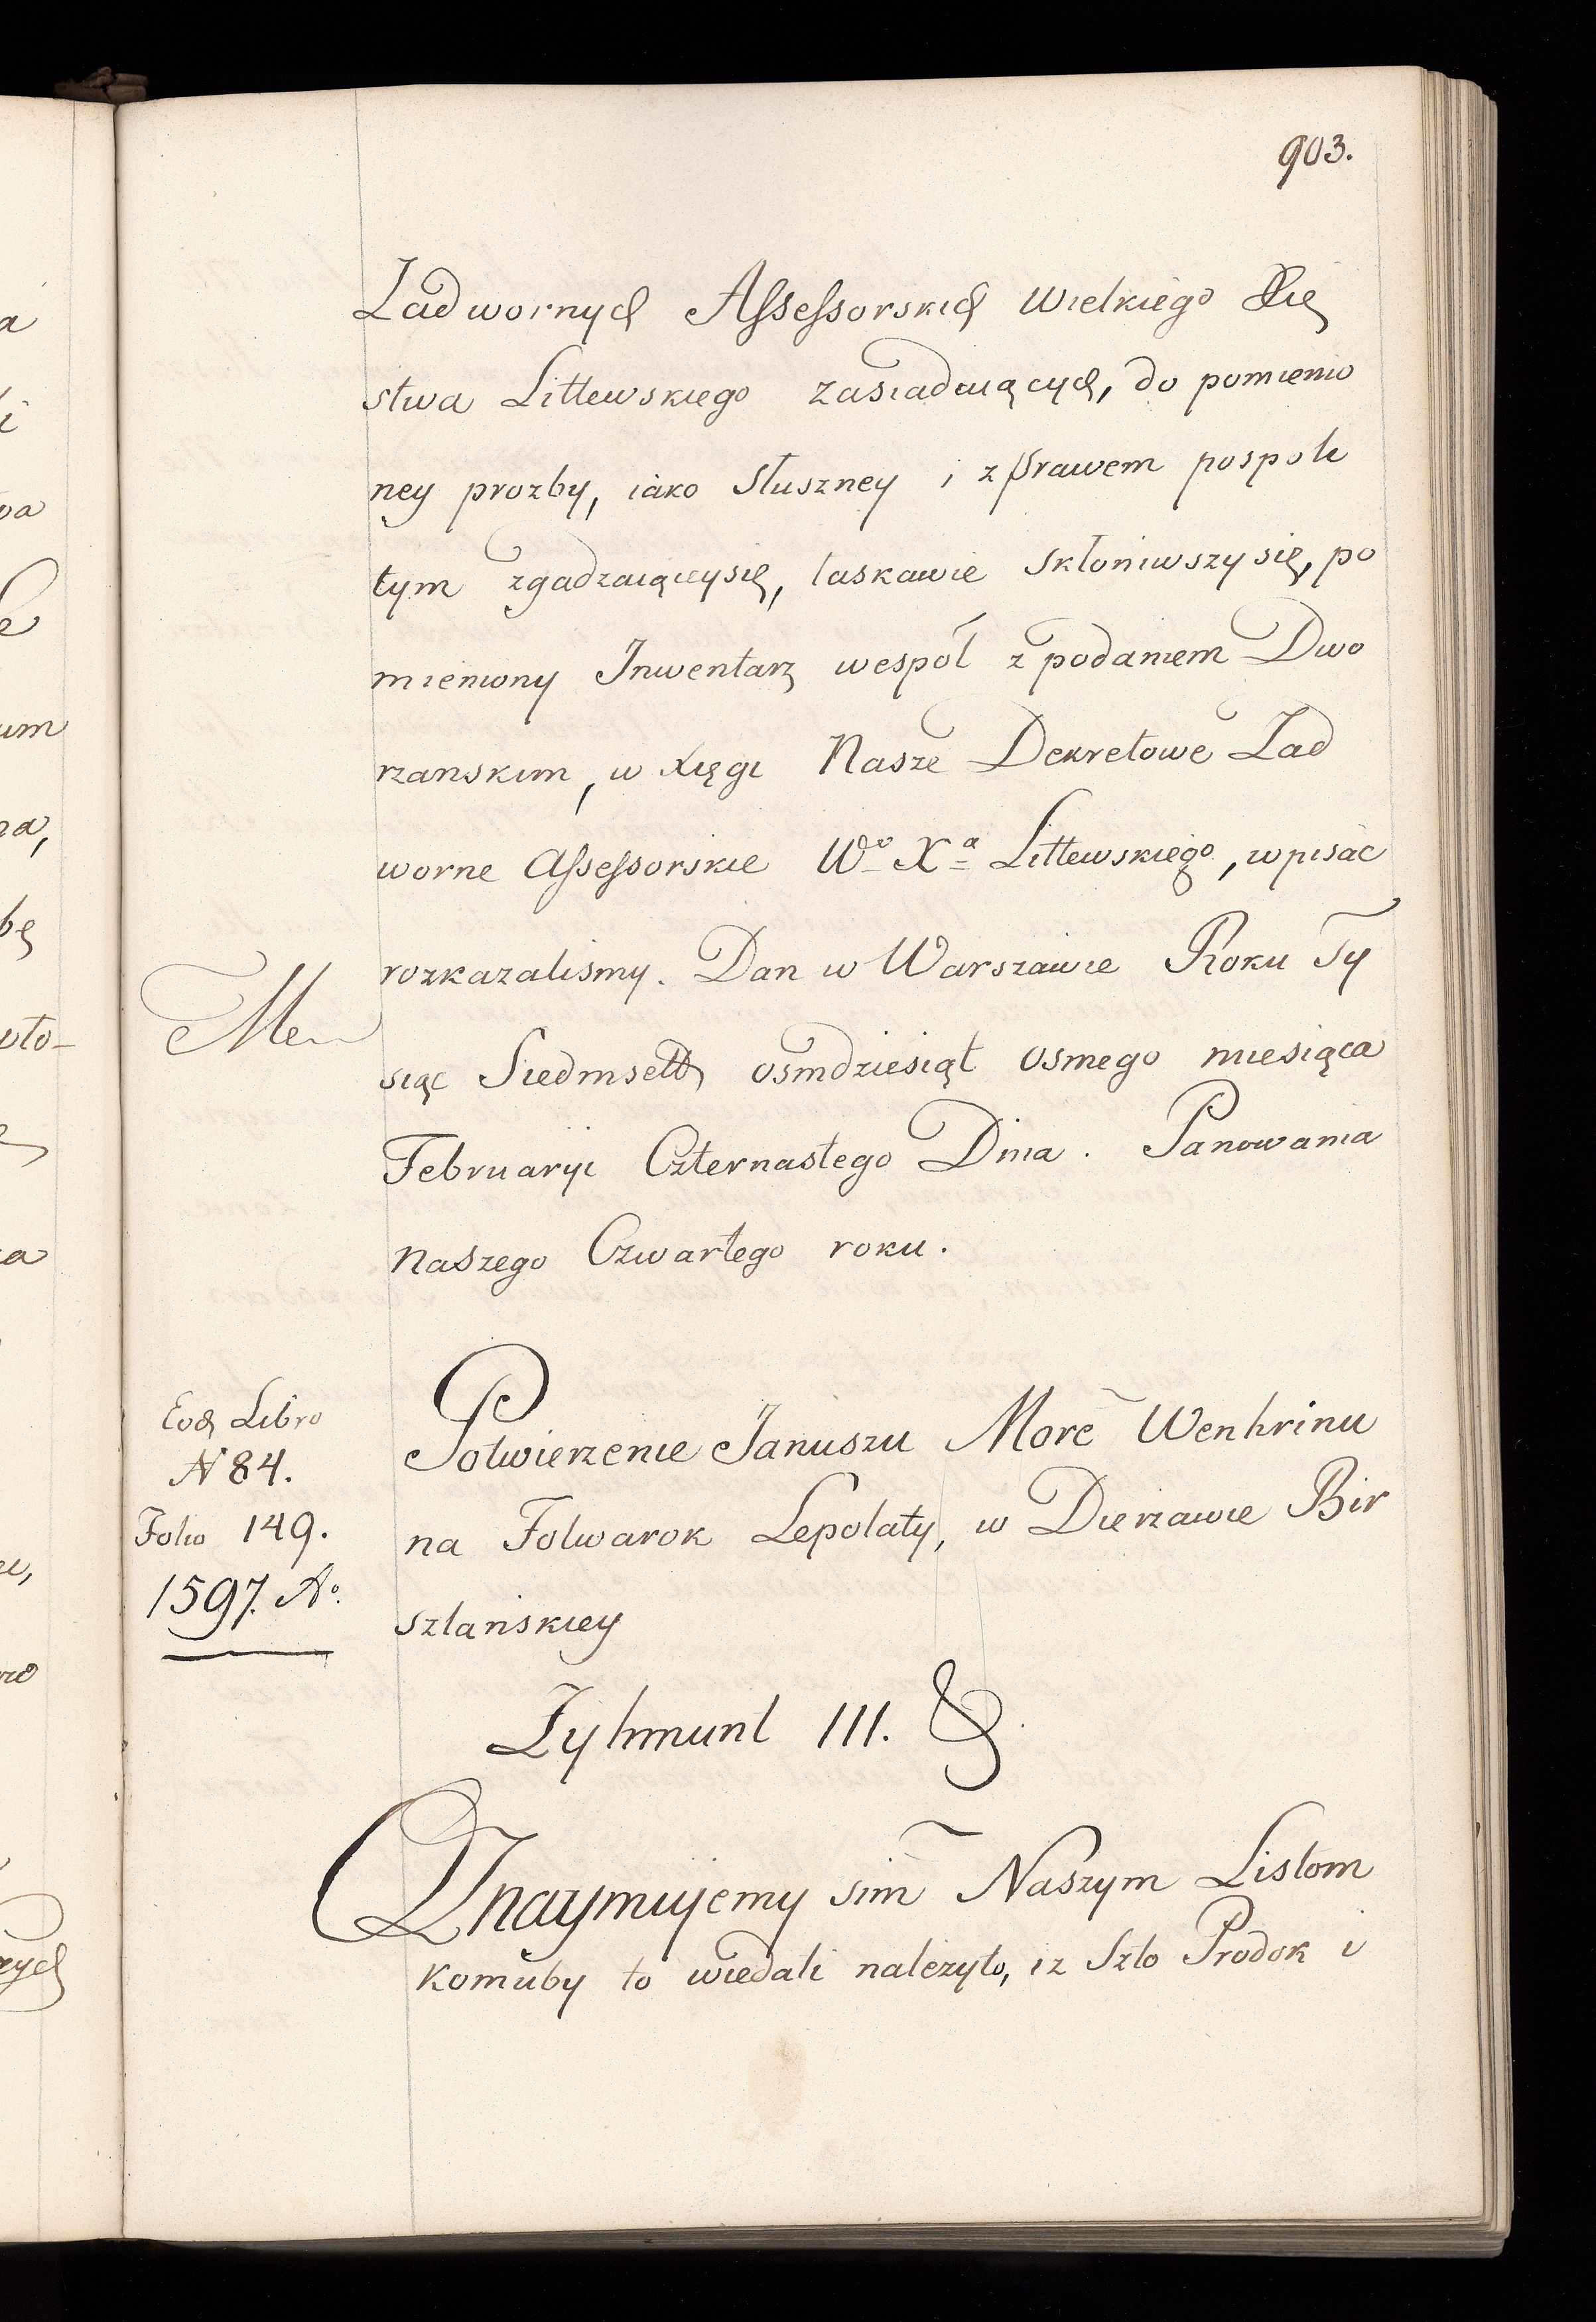 903.
Zadwornych Assessorskich Wielkiego Xię
stwa Littewskiego zasiadaiących, do pomienio
ney prozby, iako Słuszney i z Prawem pospoli
tym zgadzaiąceysię, laskawie Skłoniwszy się, po
mieniony Inwentarz wespół z podaniem Dwo
rzanskim, w Xięgi Nasze Dekretowe Zad
worne Assessorskie Wo Xa Littewskiego, wpisać
rozkazalismy. Dan w Warszawie Roku Ty
siąc Siedmset osmdziesiąt osmego miesiąca
Februaryi Czternastego Dnia. Panowania
naszego Czwartego roku.
Eod Libro
N 84.
Folio 149.
1597. Ao.
Potwierzenie Januszu More Wenhrinu
na Folwarok Lepolaty, w Dierzawie Bir
sztanskiey
Zyhmunt III. &
Oznaymujemy sim Naszym Listom
komuby to wiedali należyło, iz Szto Prodok i